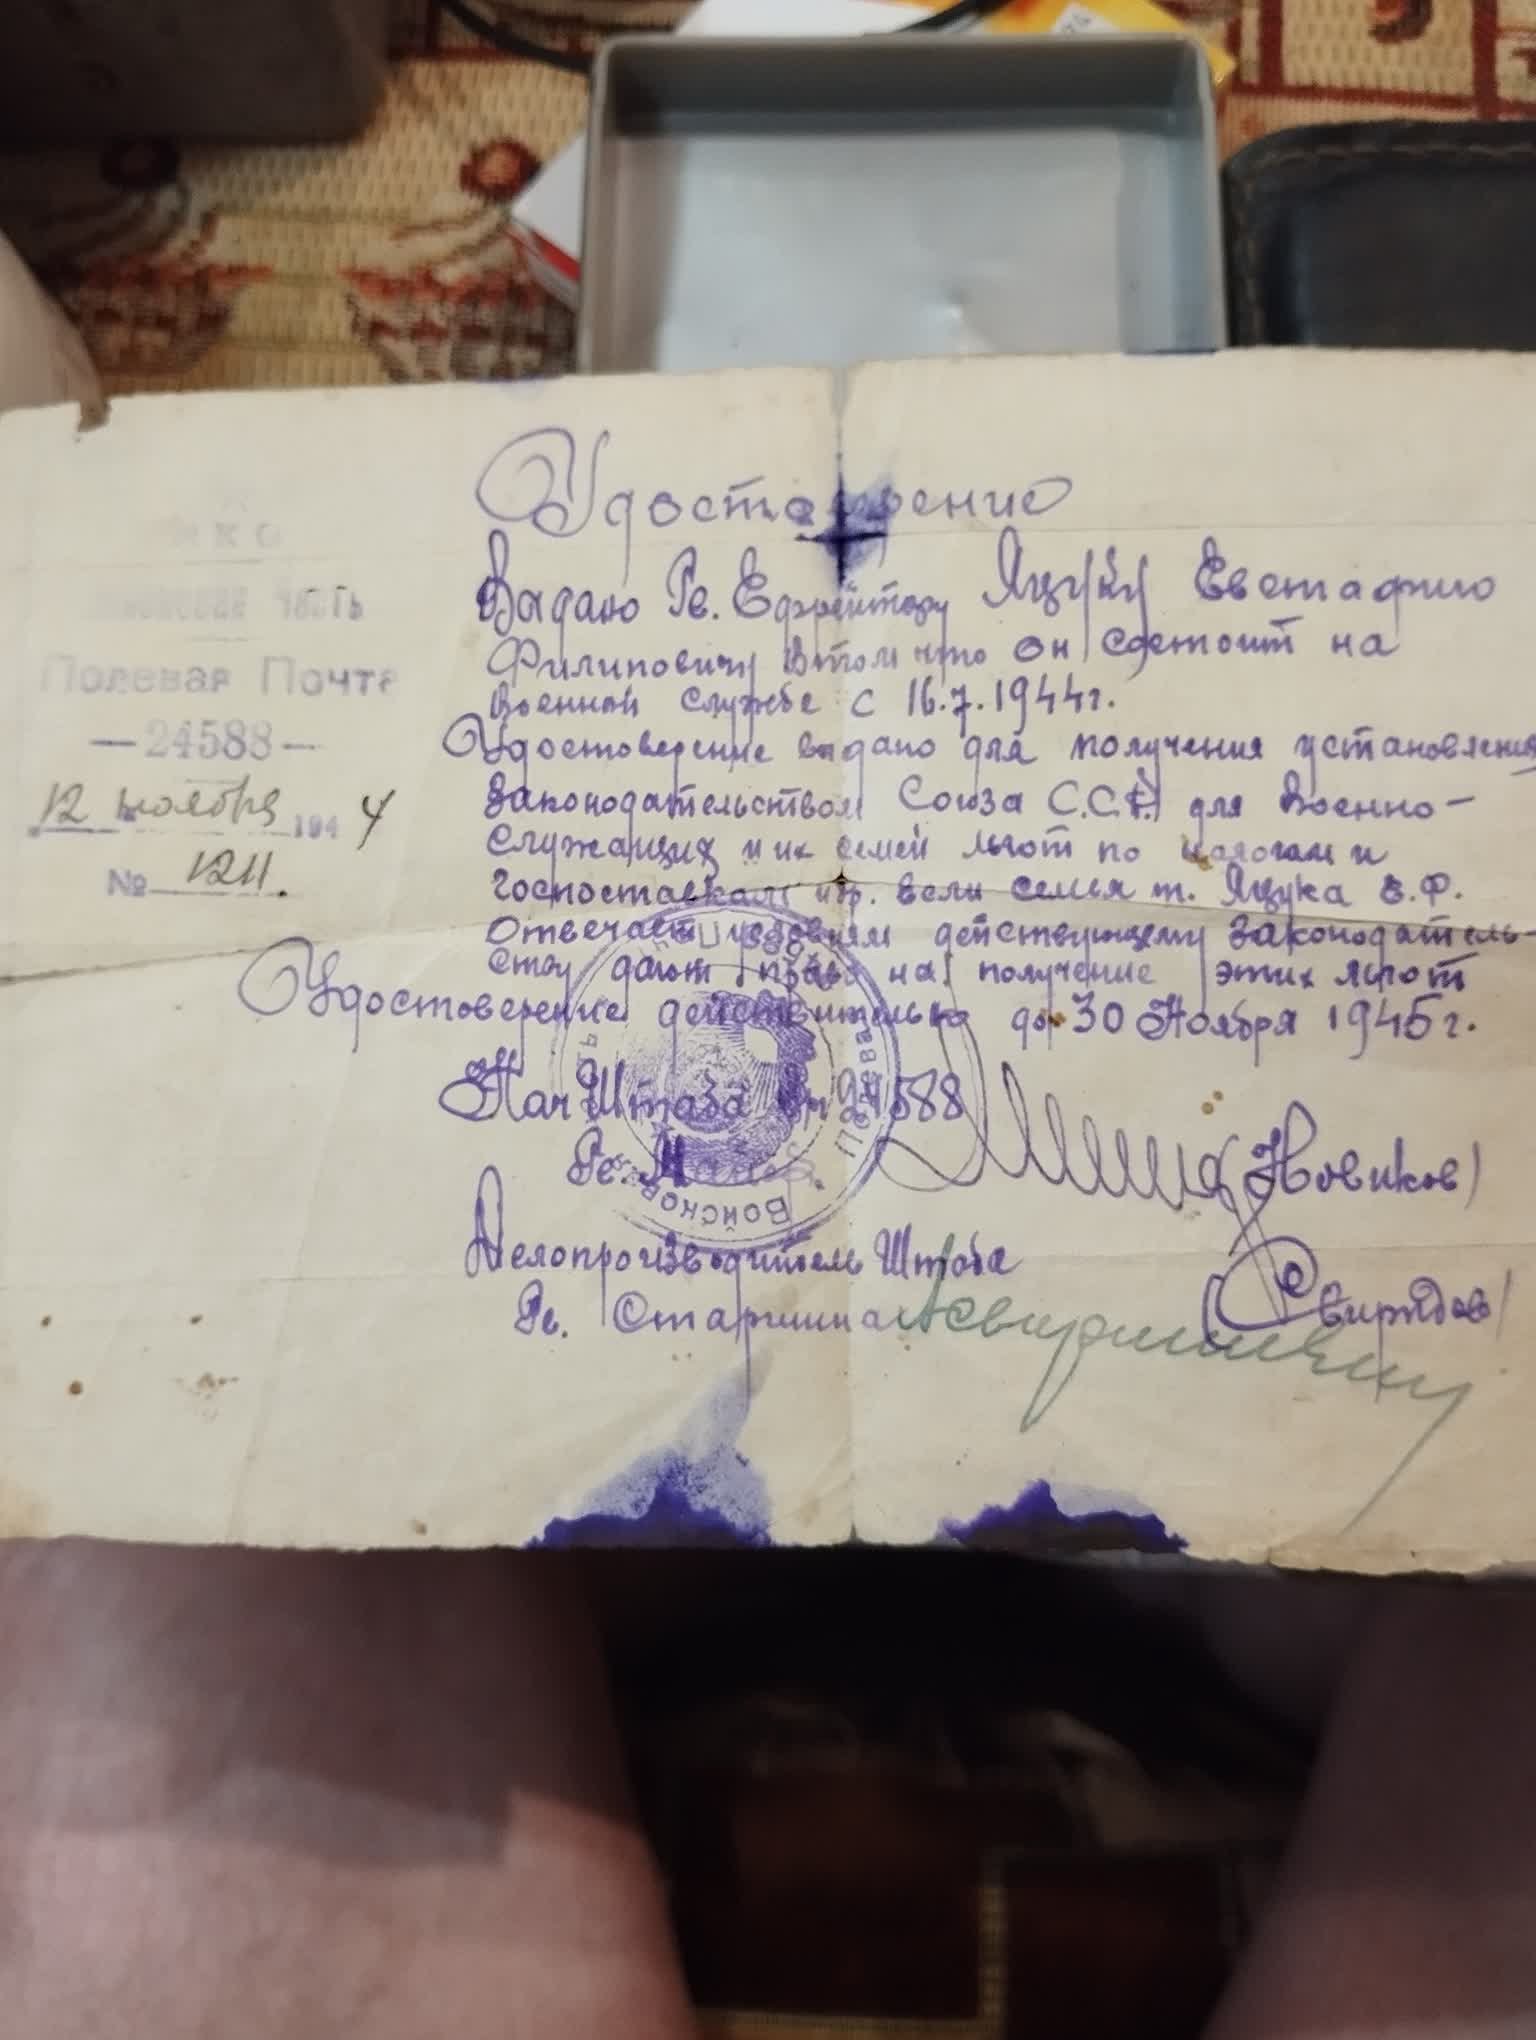 НКО
Войсковая часть
Полевая Почта
—24588—
12 ноября 1944
№ 1211.
Удостоверение
Выдано Гв. Ефрейтору Яцуку Евстафию
Филиповичу втом что он состоит на
Военной службе с 16.7.1944г.
Удостоверение выдано для получения установления
Законодательством Союза С.С.Р. для Военно-
служащих и их семей льгот по налогам и
госпоставкам и др. Если семья т. Яцука Е.Ф.
Отвечает условиям действующему Законодатель-
ству дают право на получение этих льгот
Удостоверение действительно до 30 Ноября 1945г.
Нач Штаба 24588
Гв. (Новиков)
Делопроизводитель Штаба
Гв. Старшина (Свиридов)
Войсков Полева